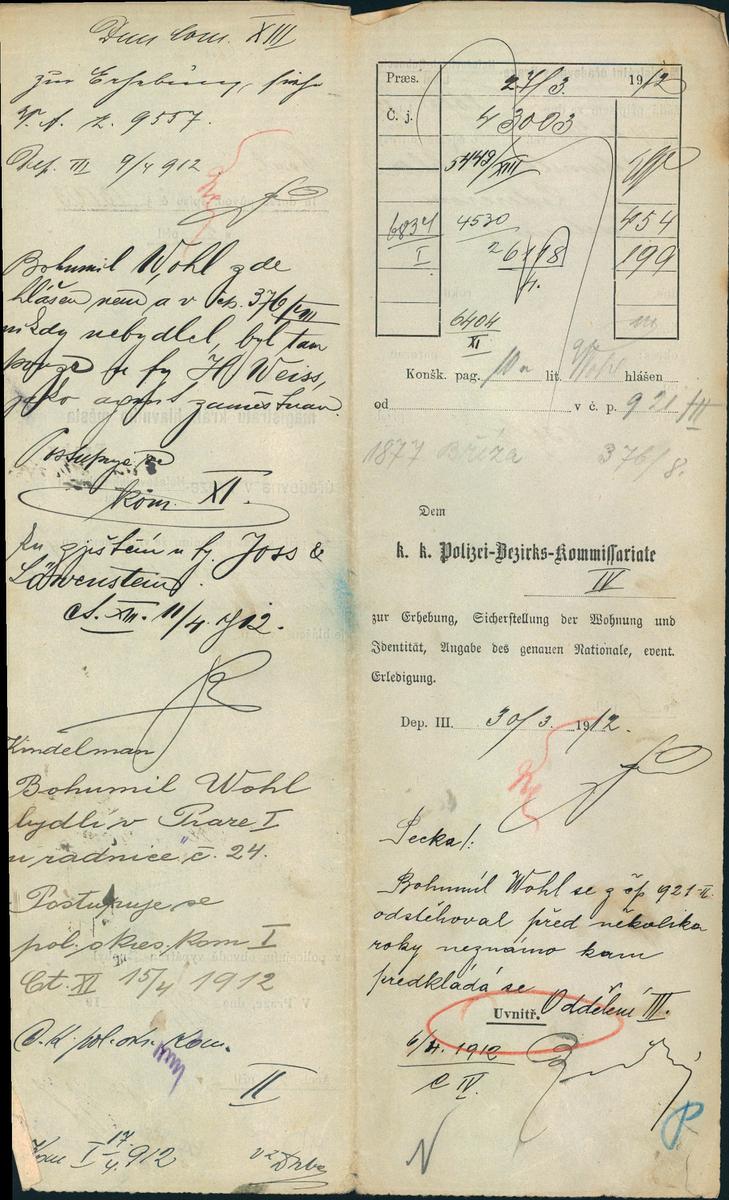 Dem Com. XIII
zur Erhebung, siehe
V. A. Z. 9557.
Dep. III 9/4 912
Bohumil Wohl zde
hlášen není a v čp. 376/VIII
nikdy nebydlel, byl tam
pouze u fy H Weiss,
jako agent zaměstnán.
Postupuje se
kom. XI.
ku zjištění u fy. Joss &
Löwenstein.
ct. XIII. 11/4 912.
Kindelman
Bohumil Wohl
bydlí v Praze I
u radnice č. 24.
Postupuje se
pol. okres. kom I
Ct. XI 15/4 1912
C. k. pol. okr. kom.
II
Kom I 17/4 912
Præs. 27/3. 1912
Č. j. 43003
5449/XIII
6834/I 4530 454
26118 199
6404/XI
Konšk. pag. lit. hlášen
od v č. p. 921/II
1877 Bříza 376/8.
Dem
k. k. Polizei-Bezirks-Kommissariate
IV
zur Erhebung, Sicherstellung der Wohnung und
Identität, Angabe des genauen Nationale, event.
Erledigung.
Dep. III. 30/3. 1912.
Pecka/:
Bohumil Wohl se z čp 921-II
odstěhoval před několika
roky neznámo kam
předkládá se Oddělení III.
Uvnitř.
6/4. 1912
C IV.
P
N